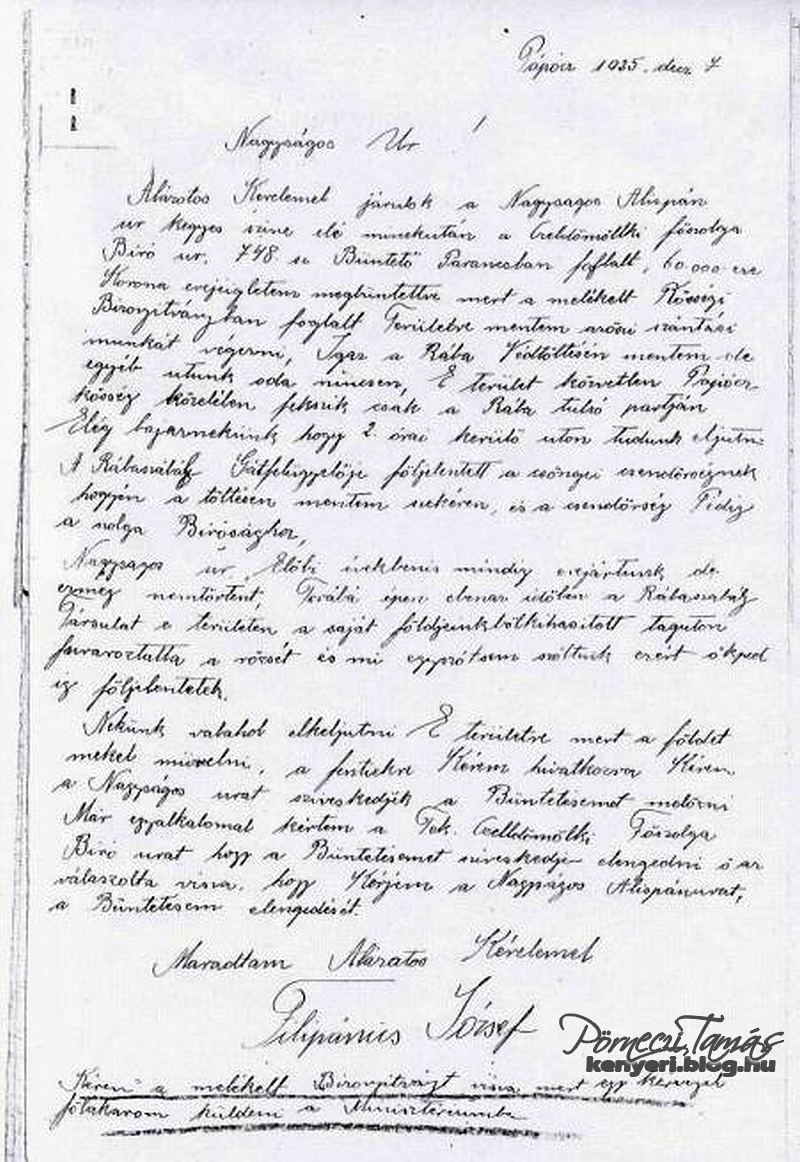 Pápócz 1925. decz 7
Nagyságos Ur !
Alázatos Kérelemel járulok a Nagyságos Alispán
ur kegyes szine elé minekután a Czeldömölki főszolga
Biró ur. 748. sz Büntető Parancsban foglalt, 60.000 eze
Korona erejéigletem megbüntettve mert a melékelt Kösségi
Bizonyitványban foglalt Területre mentem szántási
munkát végezni, Igaz a Rába Védtöltésén mentem de
egyéb utunk oda nincsen, E terület követlen Pápócz
kösség közelében fekszik csak a Rába tulsó partján
Elég bajarnekünk hogy 2. órai kerülő uton tudunk eljutni
A Rábaszabály Gátfelügyelője följelentett a csöngei csendőrségnek
hogyén a töltésen mentem szekéren, és a csendőrség Pedig
a szolga Birósághoz,
Nagyságos úr Előbi években is mindig erejártunk de
ezmeg nemtörtént, Tovább épen ebenaz időben a Rábaszabály
Társulat e területen a saját földjeinkbőlkihasitott taguton
fuvaroztatta a rőzsét és mi egyszótsem szóltunk ezért ők
ig följelentetek.
Nekünk valahol elkeljutni E területre mert a földet
mekel művelni, a fentiekre Kérem hivatkozva Kérem
a Nagyságos urat sziveskedjék a Büntetésemet
Már egyalkalomal kértem a Tek. Czelldömölki Főszolga
Biró urat hogy a Büntetésemet sziveskedje elengedni ő az
válaszolta vissza, hogy Kérjem a Nagyságos Alispánurat,
a Büntetésem elengedését.
Maradtam Alázatos Kérelemel
Filipánics József
Kérem a melékelt Bizonyitványt vissza mert egy kérvényel
föl akarom küldeni a Ministériumba
Pörneczi Tamás
kenyeri.blog.hu